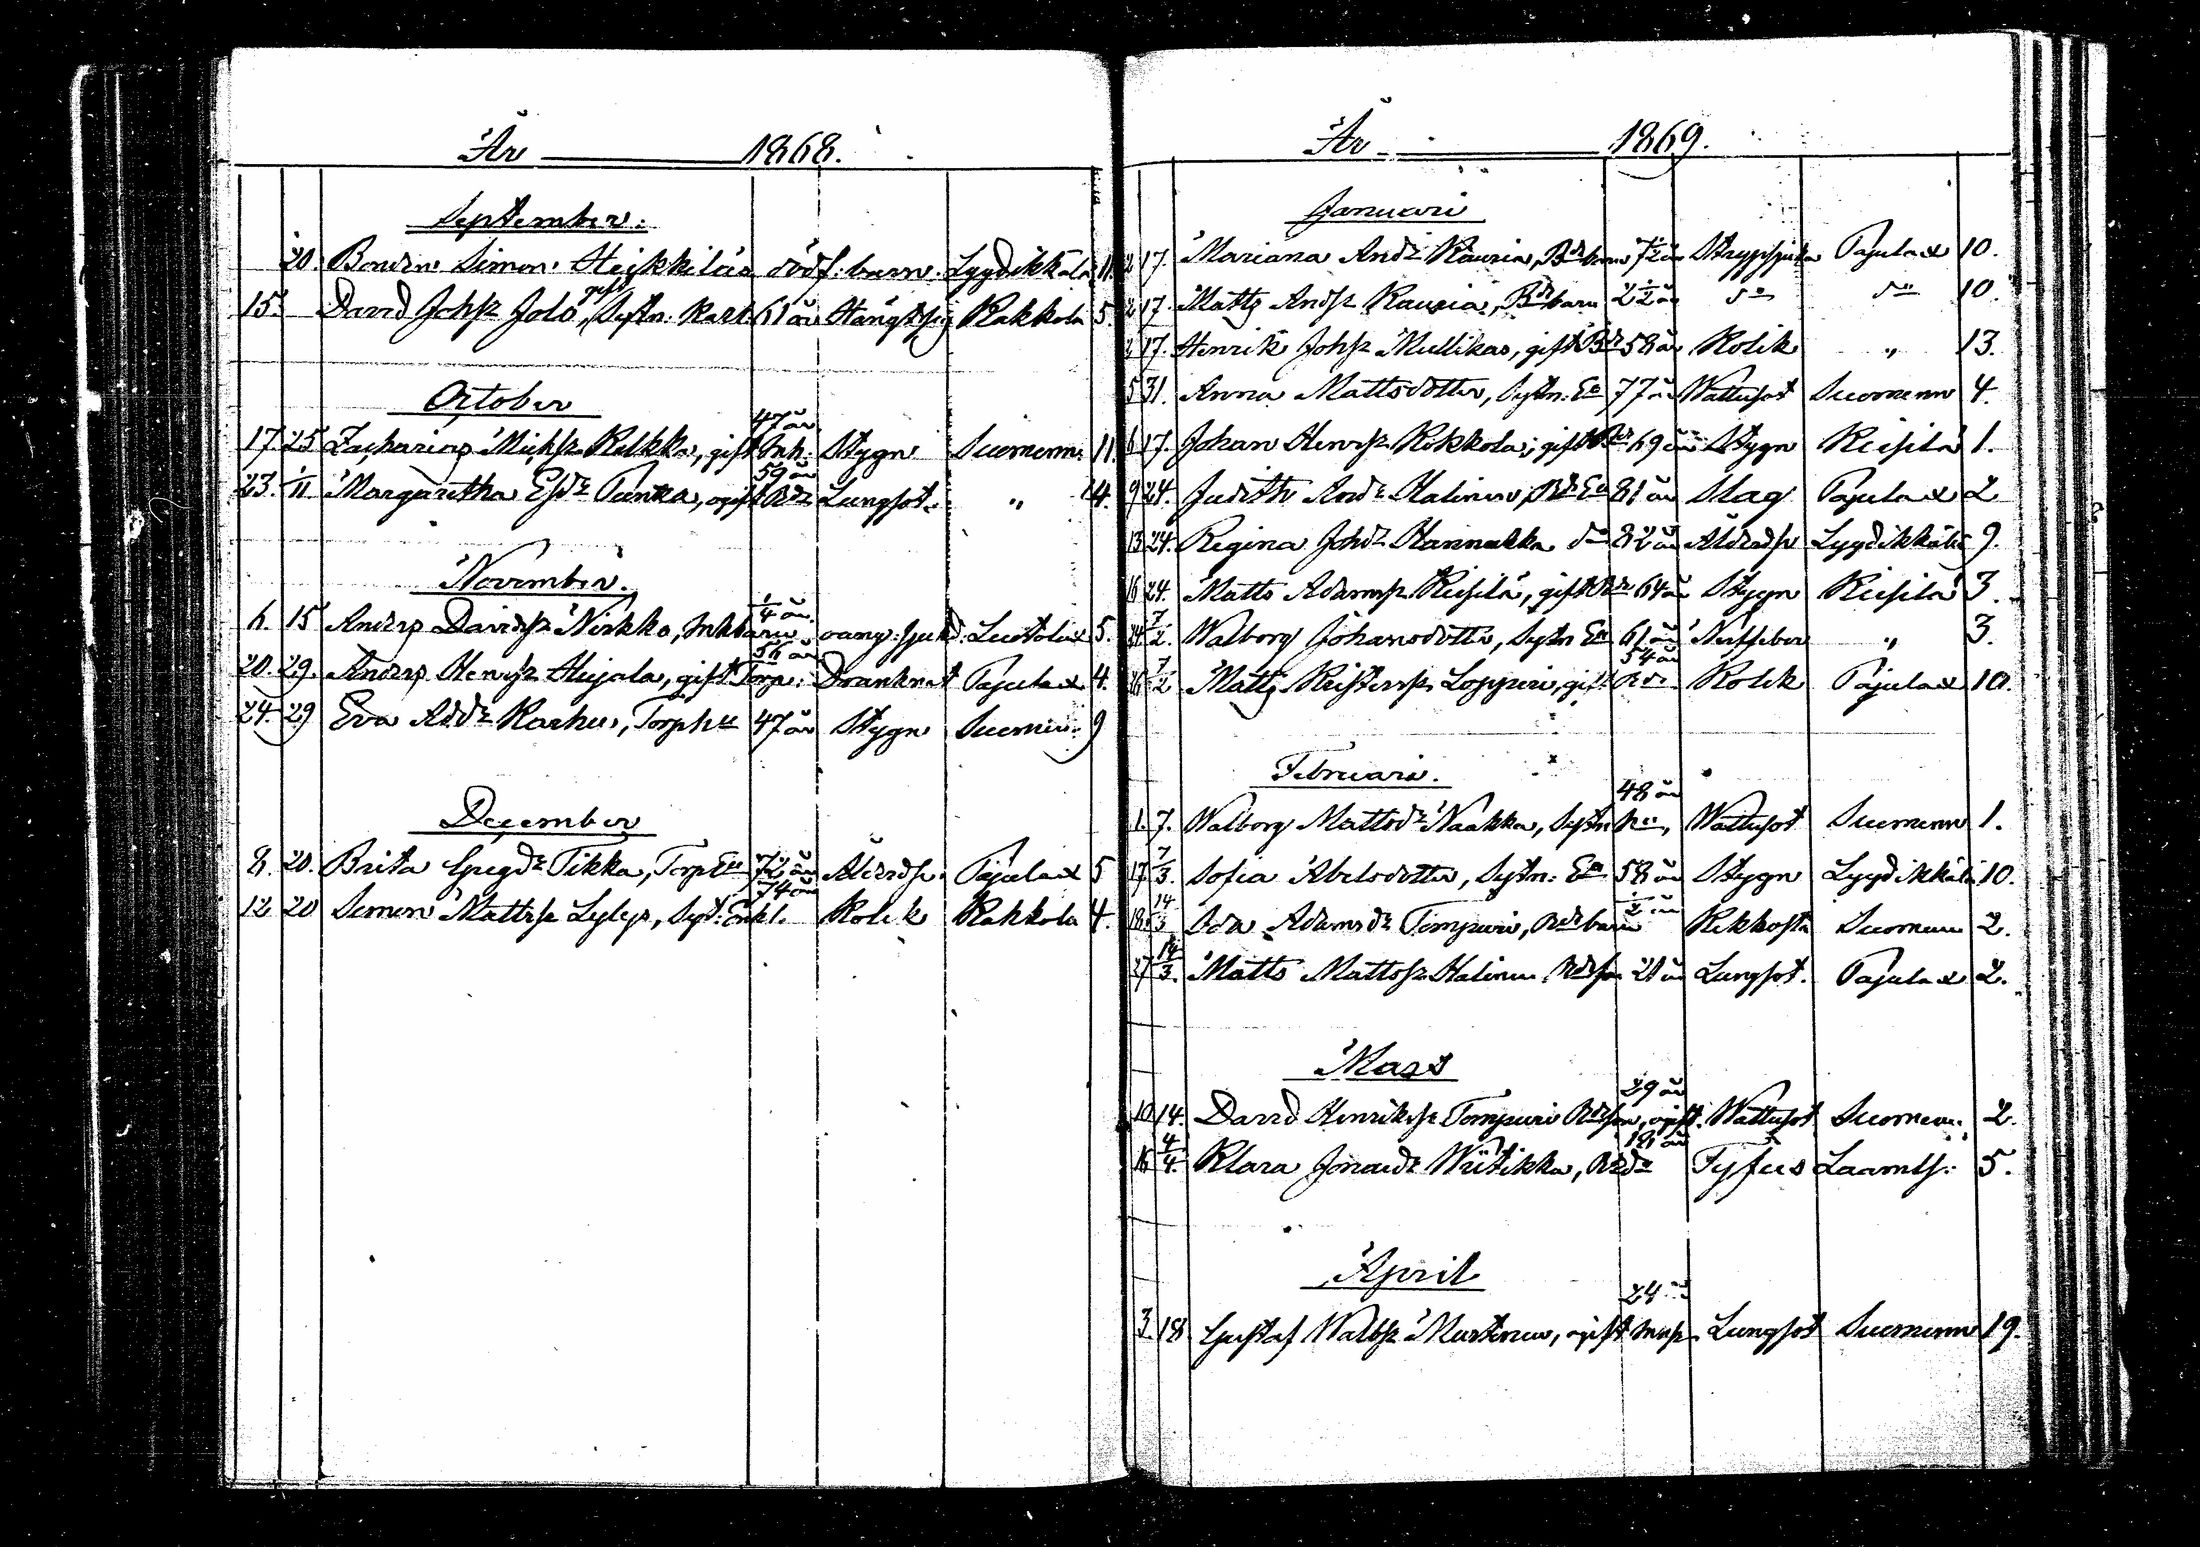 År 1868.
September:
20. Bonden Simon Heikkiläs dödf: barn. Lyydikkälä 11.
gift
15. David Johsz Jolo, Sytn: Karl 61 år Hängt sig Kakkola 5.
October
47 år
17. 25 Zacharias Michsz Kelkka, gift Inh: Stygn Suomenn: 11.
59 år
23. 1/11 Margaretha Esdr Tanka, ogift Bdr Lungsot. " 14.
November.
1/4 år.
6. 15 Anders Davidsz Nirkko, Inh barn. oang: sjukd. Luotola 5.
56 år
20. 29. Anders Henrsz Hujala, gift Torp: Drunknat Pajula 4.
24. 29 Eva Addr Karhu, Torph: 47 år Stygn Suomen: 9
December
8. 20. Brita Gregdr Tikka, Torp Ea 72 år Ålderds. Pajula 5
74 år
12 20 Simon Mattssz Lylys, Syt: Enkl. Kolik Kakkola 4.
År 1869.
Januari
2 17. Mariana Andr Rauria, Bdr barn 7 1/2 år Strypsjuka Pajula 10.
2 17. Matts Andsz Rauria, Bdr barn 2 1/2 år do do 10.
2 17. Henrik Johsz Mullikas, gift Bdr 58 år Kolik " 13.
5 31. Anna Mattsdotter, Sytn: Ea 77 år Wattusot Suomenn 4.
6 17. Johan Henrsz Kokkola, gift Bdr 69 år Stygn Reisilä 1.
9 24. Judith Andr Halinen, Bdr Ea 81 år Slag Pajula 2
13 24. Regina Johdr Hannukka do 82 år Ålderds Lyydikkälä 9.
16 24. Matts Adamsz Reisilä, gift Bdr 64 år Stygn Reisilä 3.
24 7/2 Walborg Johansdotter, Sytn Ea 61 år Nerffeber " 3.
54 år
26 7/2 Matts Kristersz Loppuri, gift Bdr Kolik Pajula 10.
Februari.
48 år
1. 7. Walborg Mattsdr Naakka, Sytn hu, Wattusot Suomenn 1.
17 7/3. Sofia Abelsdotter, Sytn: Ea 58 år Stygn Lyydikkälä 10.
18. 14/3 Ida Adamsdr Tompuri, Bdr barn 2 år Kikhosta Suomenn 2.
27 14/3. Matts Mattssz Halinen Bdrson 21 år Lungsot. Pajula 2.
Mars
29 år
10 14. David Henrikssz Tompuri Bdrson, ogift. Wattusot Suomenn: 2.
18 år
16 4/4. Klara Jonasdr Wiitikka, Bdr Tyfus Laamds: 5.
April
24 år
3. 18 Gustaf Walbsz Martinen, ogift Inhs. Lungsot Suomenn 19.